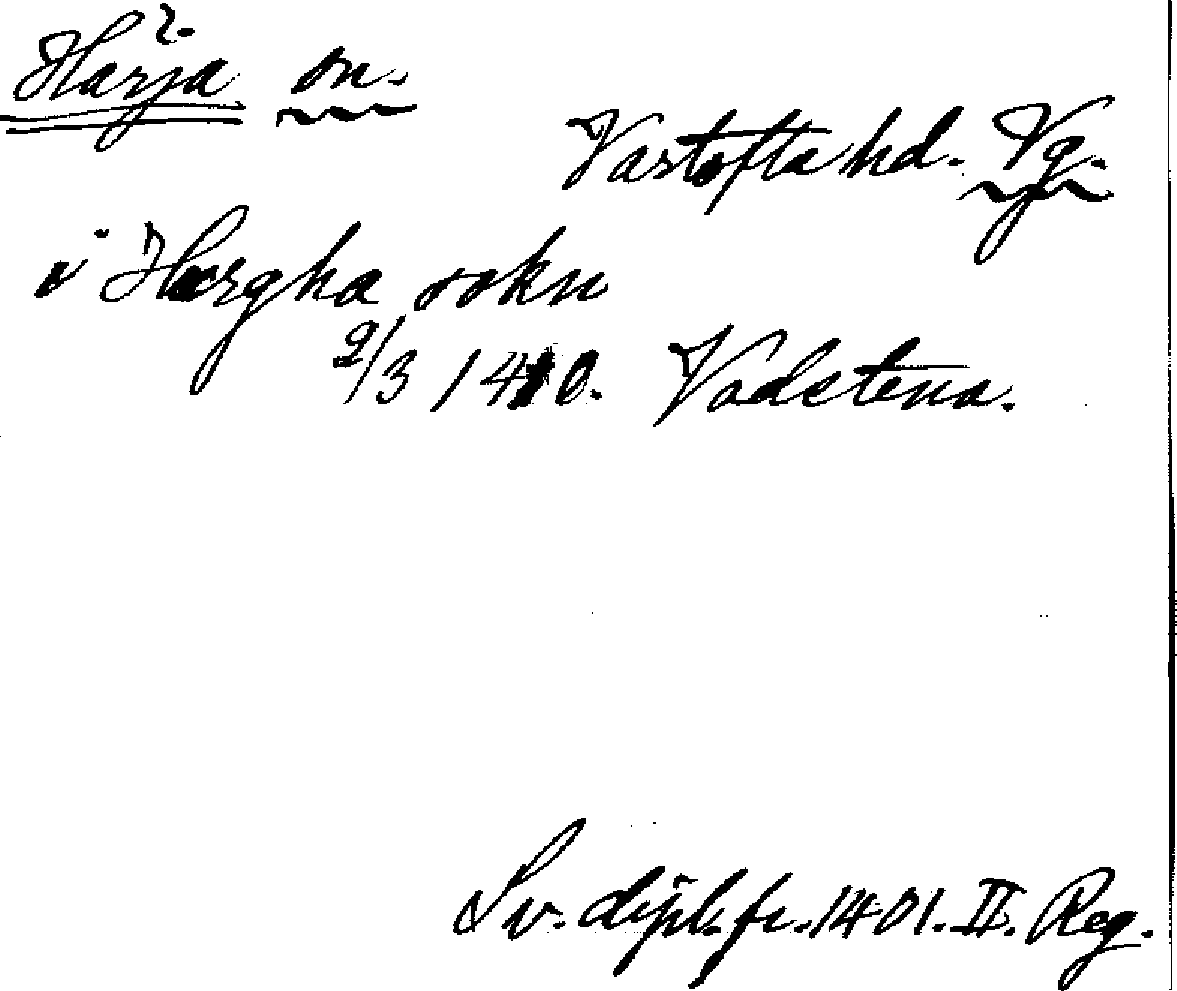 Härja sn.
Vartofta hd. Vg.
i Hærgha sokn
2/3 1410. Vadstena.
Sv. dipl. fr. 1401. II. Reg.